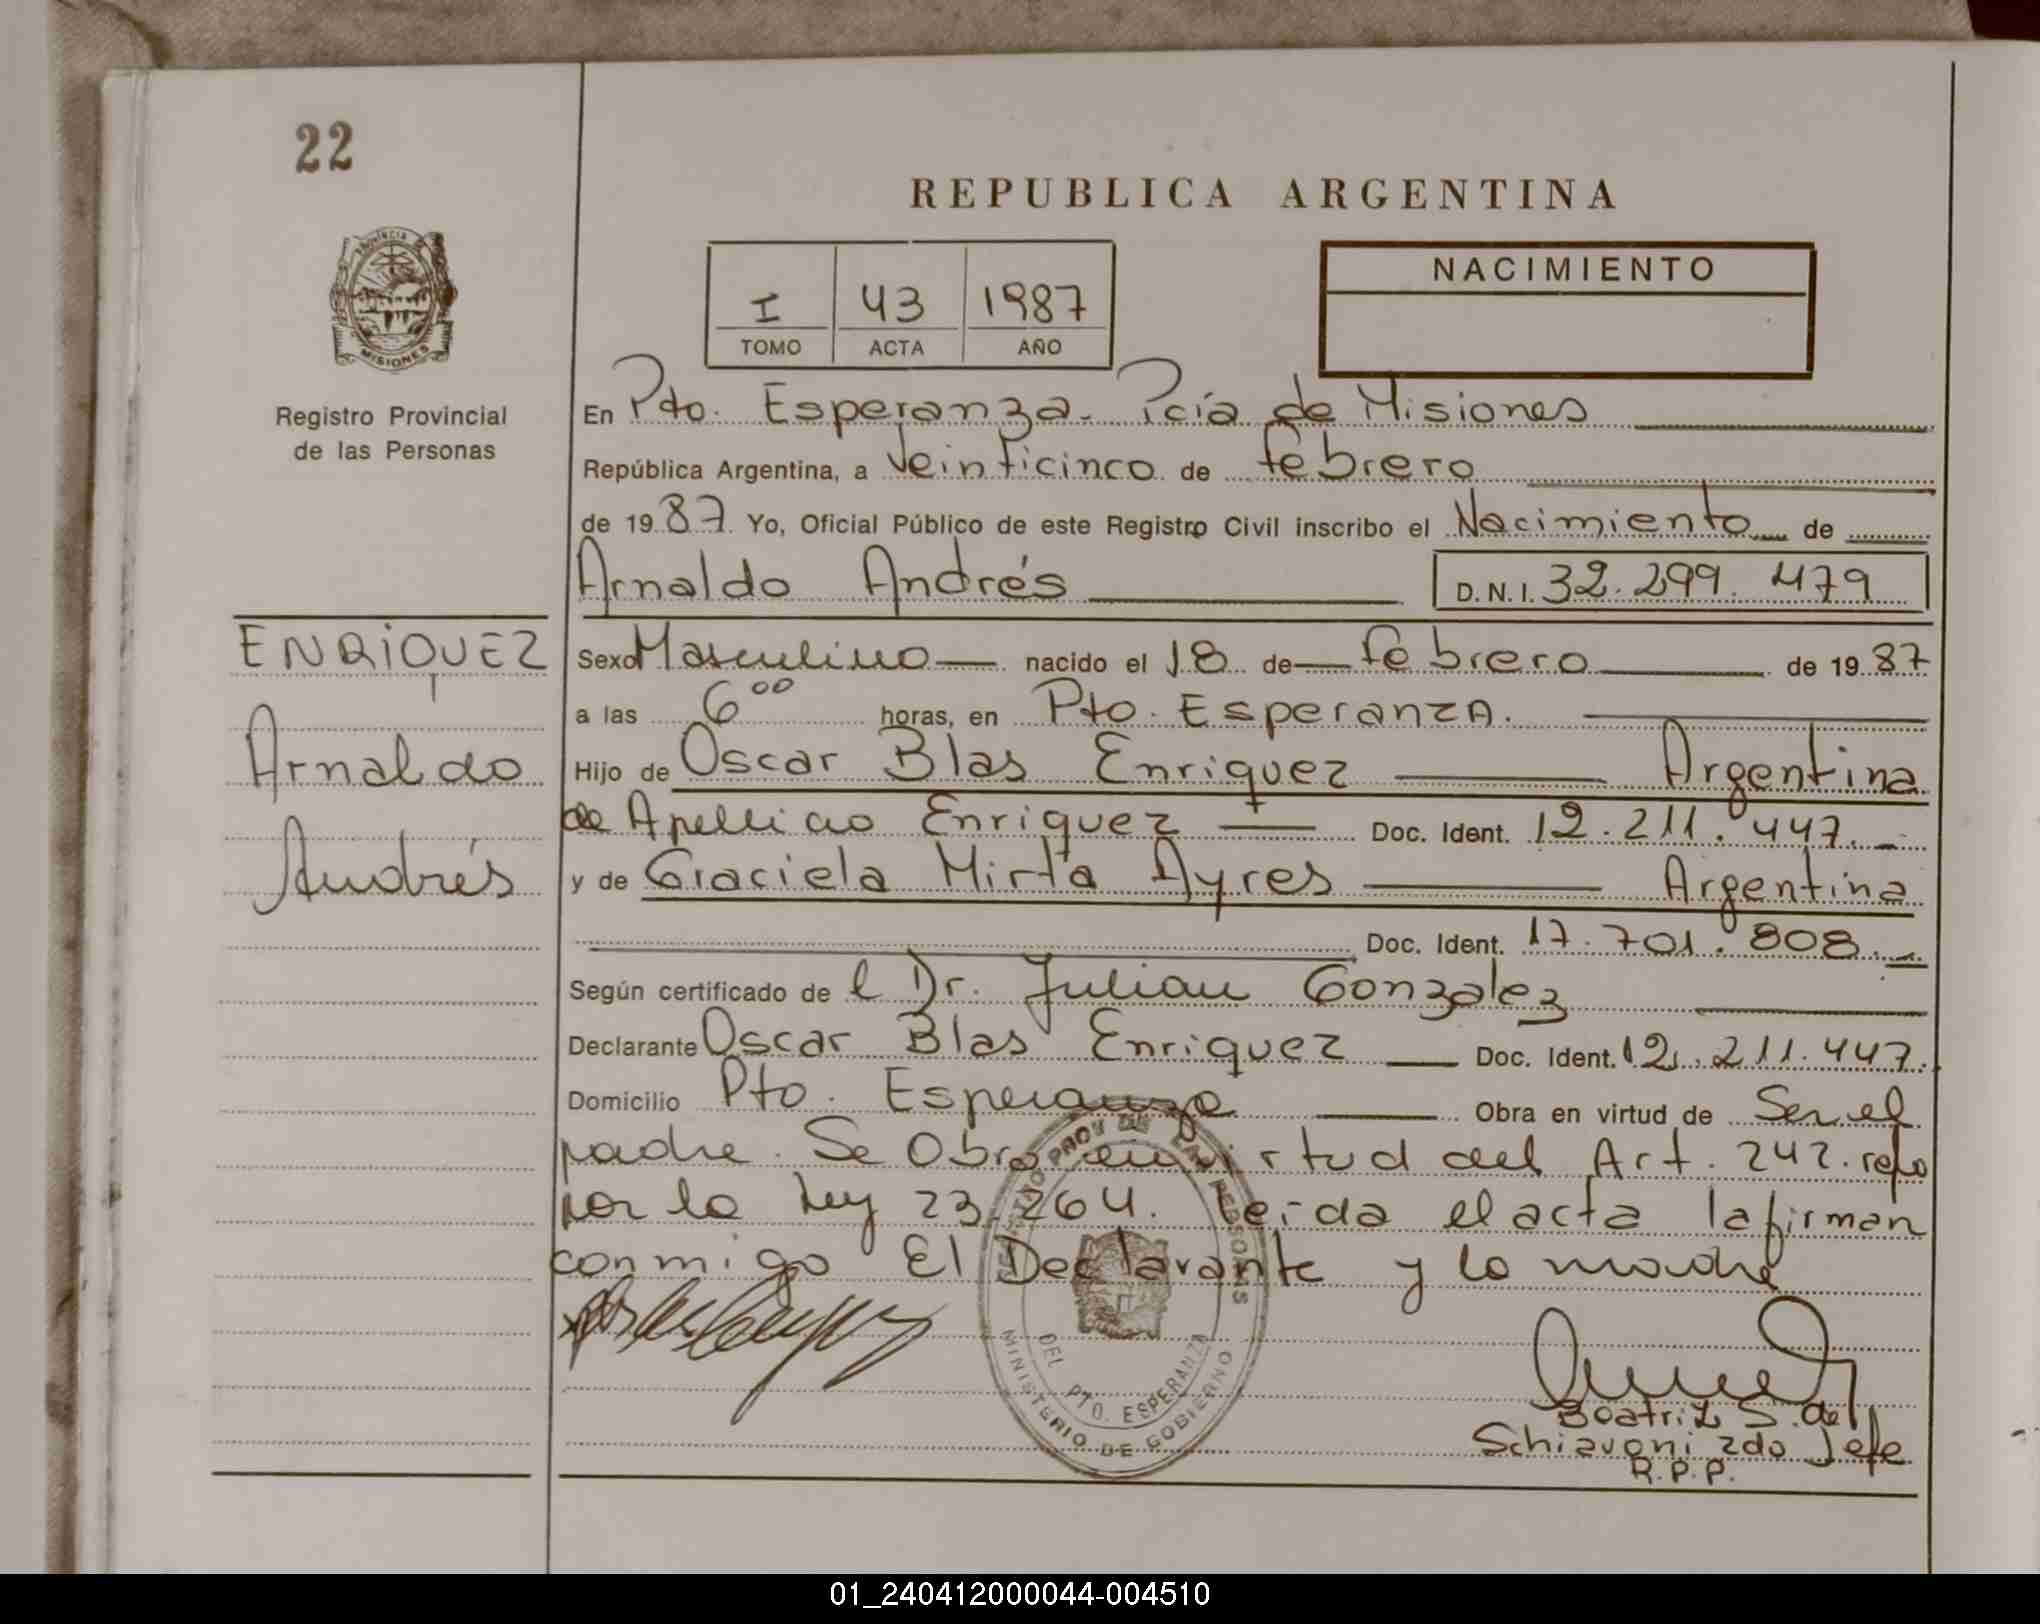 22
REPUBLICA ARGENTINA
PROVINCIA DE
MISIONES
Registro Provincial
de las Personas
I 43 1987
TOMO ACTA AÑO
NACIMIENTO
En Pto. Esperanza. Pcía de Misiones
República Argentina, a Veinticinco de febrero
de 1987. Yo, Oficial Público de este Registro Civil inscribo el Nacimiento de
Arnaldo Andrés D.N.I. 32.299.479
ENRIQUEZ
Arnaldo
Andrés
Sexo Masculino nacido el 18 de febrero de 1987
a las 6 00 horas, en Pto. Esperanza.
Hijo de Oscar Blas Enriquez Argentina
de Apellido Enriquez Doc. Ident. 12.211.447.
y de Graciela Mirta Ayres Argentina
Doc. Ident. 17.701.808.
Según certificado de l Dr. Julian Gonzalez
Declarante Oscar Blas Enriquez Doc. Ident. 12.211.447.
Domicilio Pto. Esperanza Obra en virtud de Ser el
padre. Se Obra en virtud del Art. 242. refo
por la Ley 23.264. Leida el acta la firman
conmigo El Declarante y la madre
REGISTRO PROV DE LAS PERSONAS
DEL PTO. ESPERANZA
MINISTERIO DE GOBIERNO
Beatriz S. de
Schiavoni 2do Jefe
R.P.P.
01_240412000044-004510